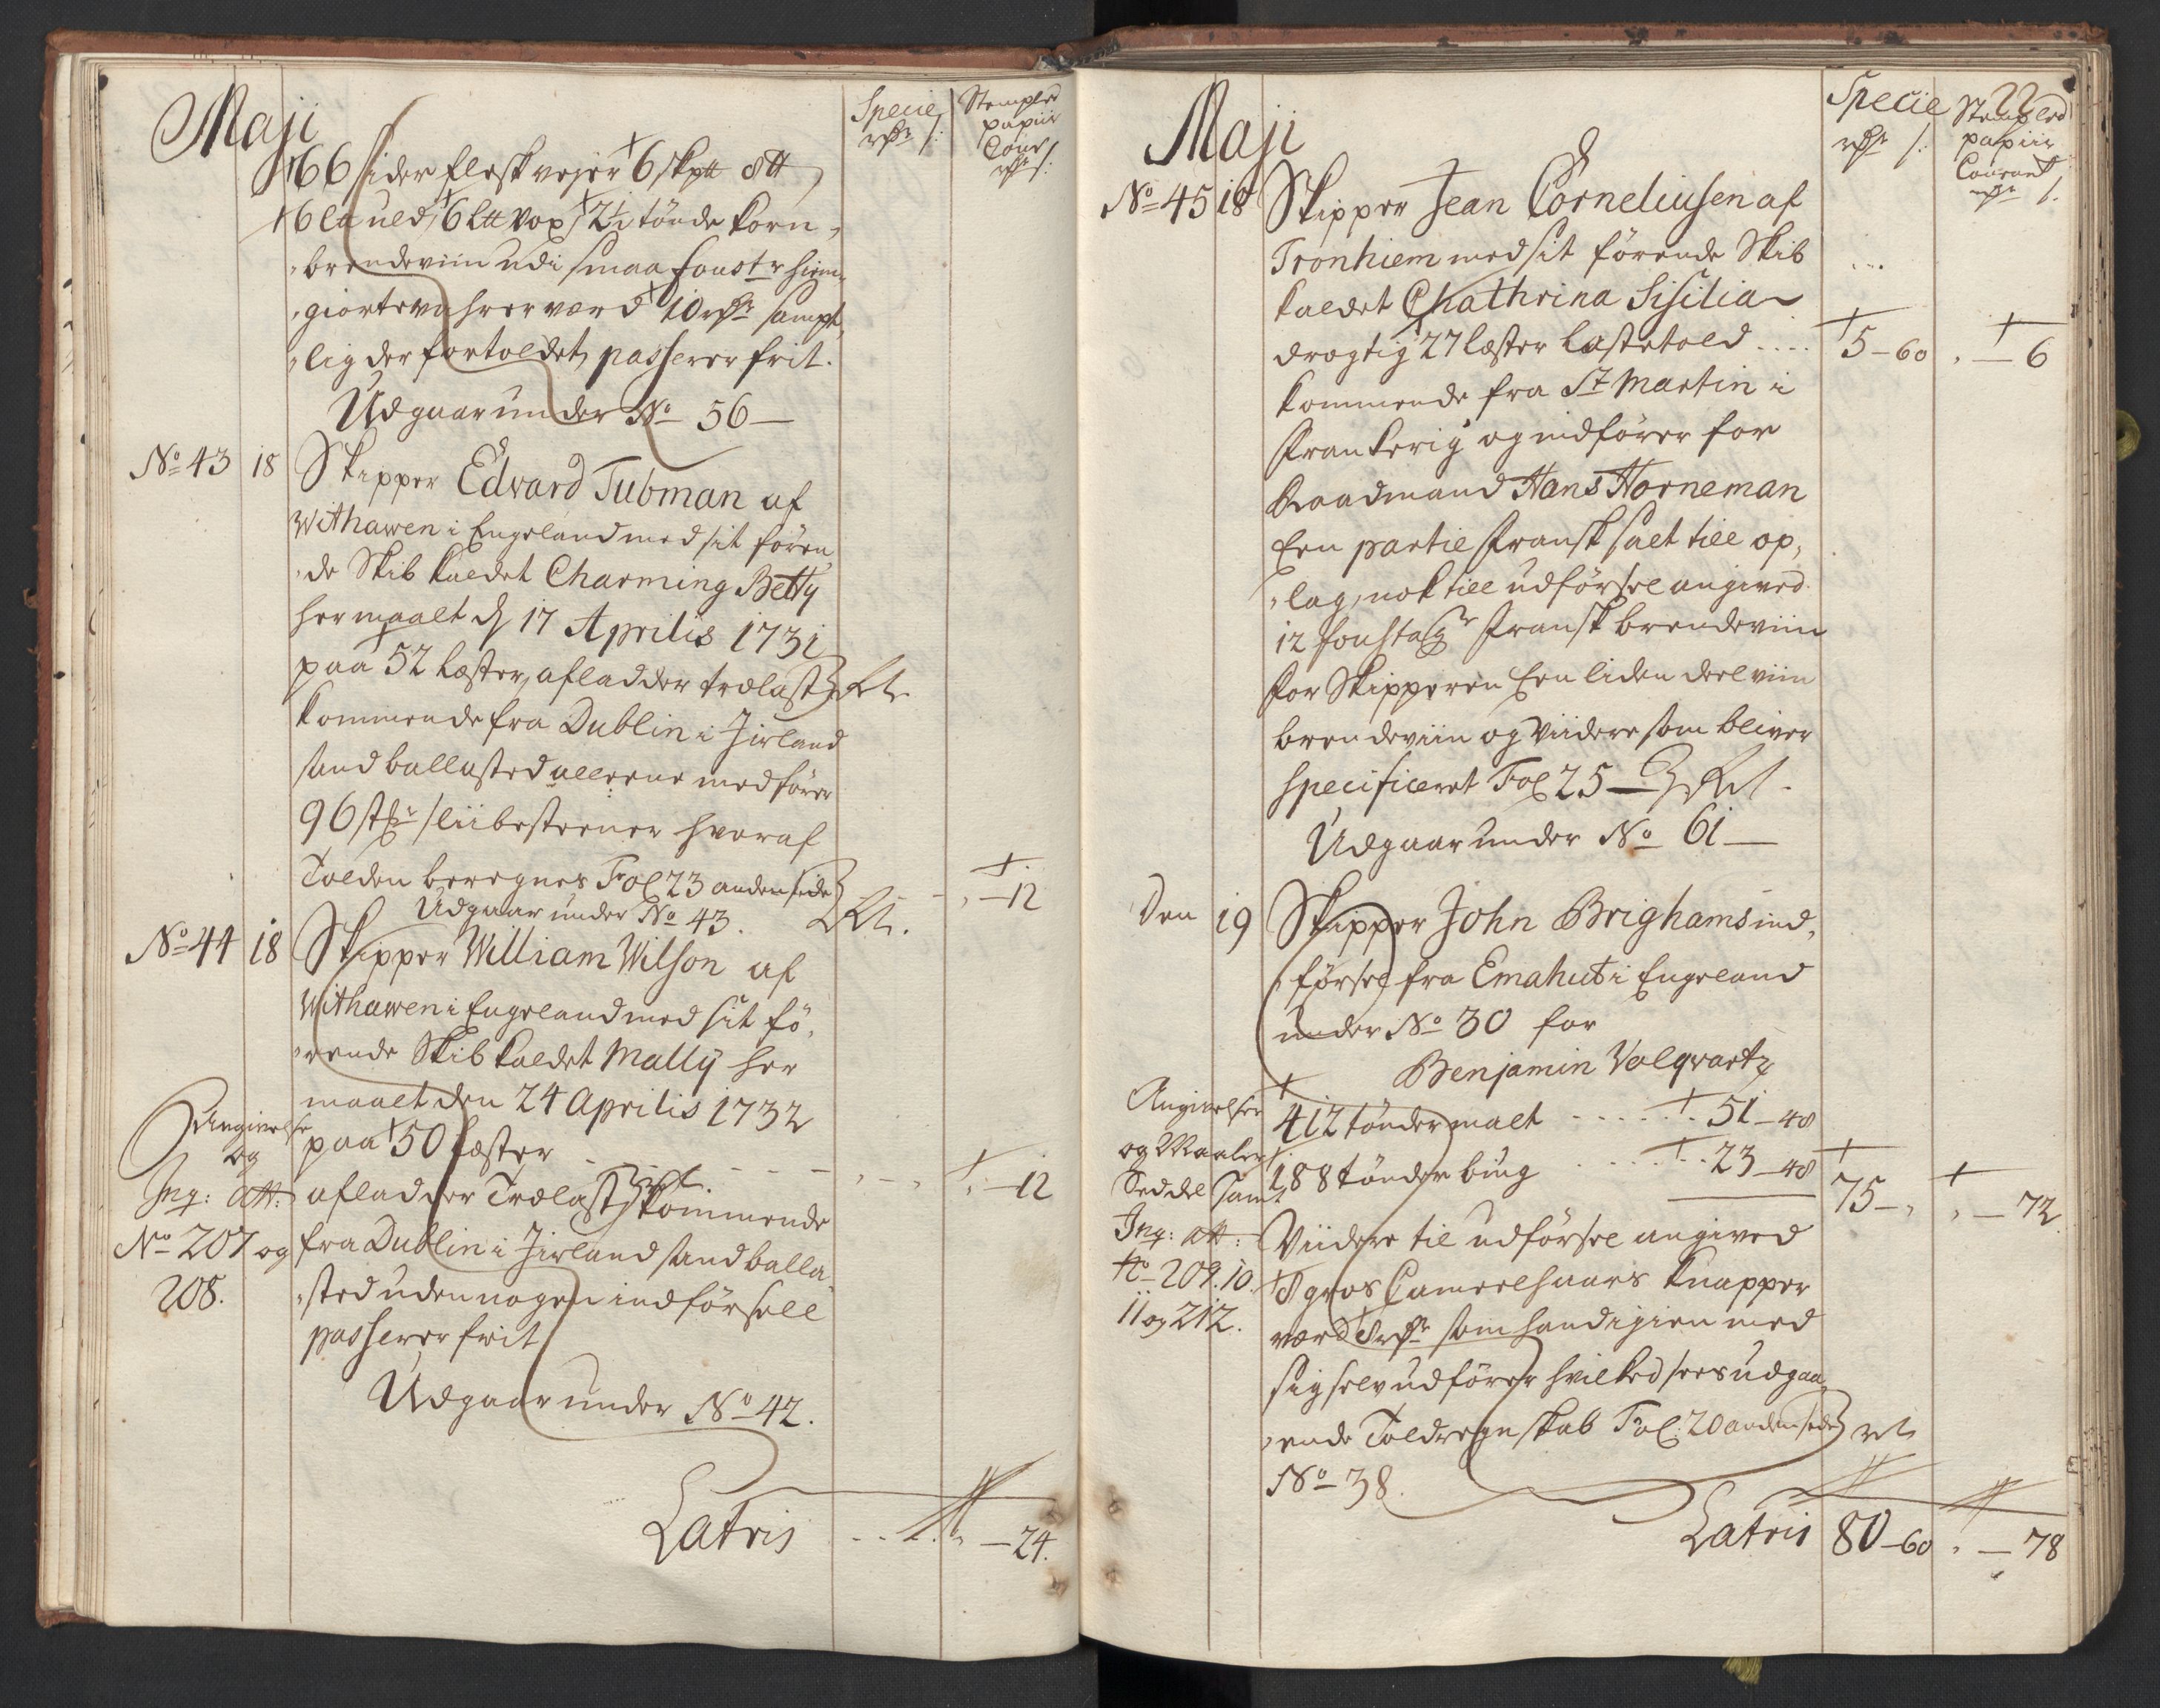 Maji
Specie
rdr s:
Stempled
papiir
Cour
rdr s:
66 sider flesk vejer 6 skptt 8 tt
6 Ltt uld, 6 Ltt vox, 2½ tönde korn,
brendeviin udi smaa foustr hiem,
giorte vahrer værd 10 rdr sampt,
lig der fortoldet, passerer frit.
Udgaar under No 56 —
No 43 18 Skipper Edvard Tubman af
Withawen i Engeland med sit fören,
de Skib kaldet Charming Betty
her maalt d 17 Aprilis 1731
paa 52 læster, aflad der trælast
kommende fra Dublin i Jirland
sand ballasted alleene medförer
96 stkr sliibesteener hvoraf
Tolden beregnes Fol 23 anden side — 12
Udgaar under No 43.
No 44 18 Skipper William Wilson af
Withawen i Engeland med sit fö,
rende Skib kaldet Mally her
maalt den 24 Aprilis 1732
Angivelse
og
Inq: att:
No 207 og
208.
paa 50 læster — 12
aflad der Trælast kommende
fra Dublin i Jirland sand balla,
sted uden nogen indförsell
passerer frit
Udgaar under No 42.
Latris — 24.
22
Maji
Specie
rdr s:
Stempled
papiir
Courant
rdr s.
No 45 18 Skipper Jean Corneliusen af
Tronhiem med sit förende Skib
kaldet Chathrina Sisilia
drægtig 27 læster Lastetold .... 5 – 60 — 6
kommende fra St Martin i
Frankerig og indförer for
Raadmand Hans Horneman
Een partie Fransk salt till op,
lag, nok till udförsel angived
12 foustagr Fransk brendeviin
for Skipperen Een liden deel viin
brendeviin og viidere som bliver
specificeret Fol 25 —
Udgaar under No 61 —
Den 19 Skipper John Brighams ind,
försel fra Emahut i Engeland
under No 30 for
Benjamin Volqvartz
Angivelser
og Maaler
Seddel samt
Inq: att:
No 209. 10.
11 og 212.
412 tönder malt ...... 51 – 48
188 tönder biug ..... 23 – 48 75 – , — 72.
Viidere til udförsel angived
8 gros Cameelhaars knapper
værd 8 rdr som hand igien med
sig selv udförer hvilked sees udgaa,
ende Toldregnskab Fol: 20 anden side
No 38.
Latris 80 – 60 — 78